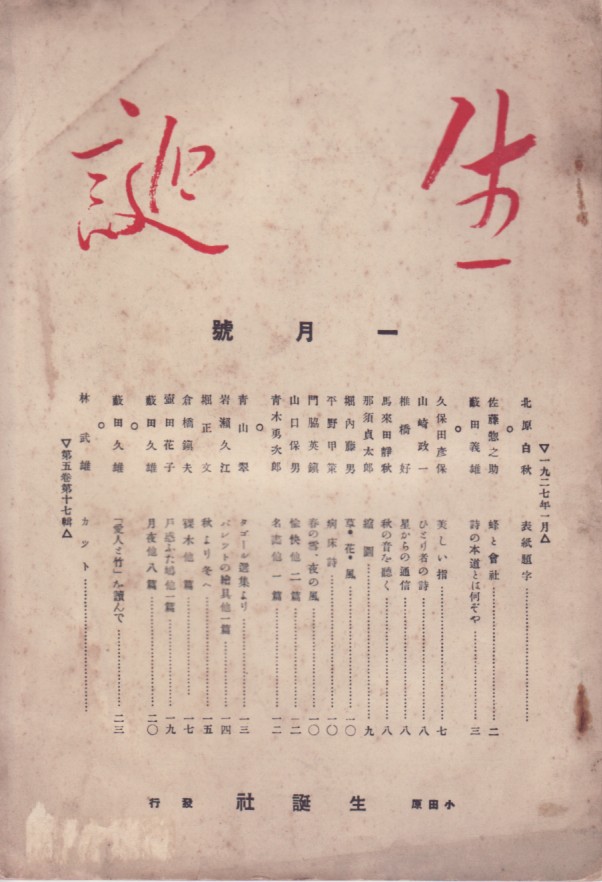 生誕
一月號
▽一九二七年一月△
北原白秋 表紙題字
○
佐藤惣之助 蜂と會社 二
藪田義雄 詩の本道とは何ぞや 三
○
久保田彦保 美しい指 七
山崎政一 ひとり者の詩 八
椎橋好 星からの通信 八
馬來田靜秋 秋の音を聽く 八
那須貞太郎 九
堀内藤男 草・花・風 一〇
平野甲策 病床詩 一〇
門脇英鎭 春の雪、夜の風 一〇
山口保男 愉快他二篇
青木勇次郎 他一篇 一二
○
青山翠 タゴール選集より 一三
岩瀬久江 パレットの繪具他一篇 一四
堀正文 秋より冬へ 一五
倉橋鎭夫 他一篇 一七
壺田花子 他一篇 一九
藪田久雄 月夜他八篇 二〇
○
藪田久雄 「愛人と竹」を讀んで 二三
○
林武雄 カット
▽第五卷第十七輯△
小田原 生誕社 發行